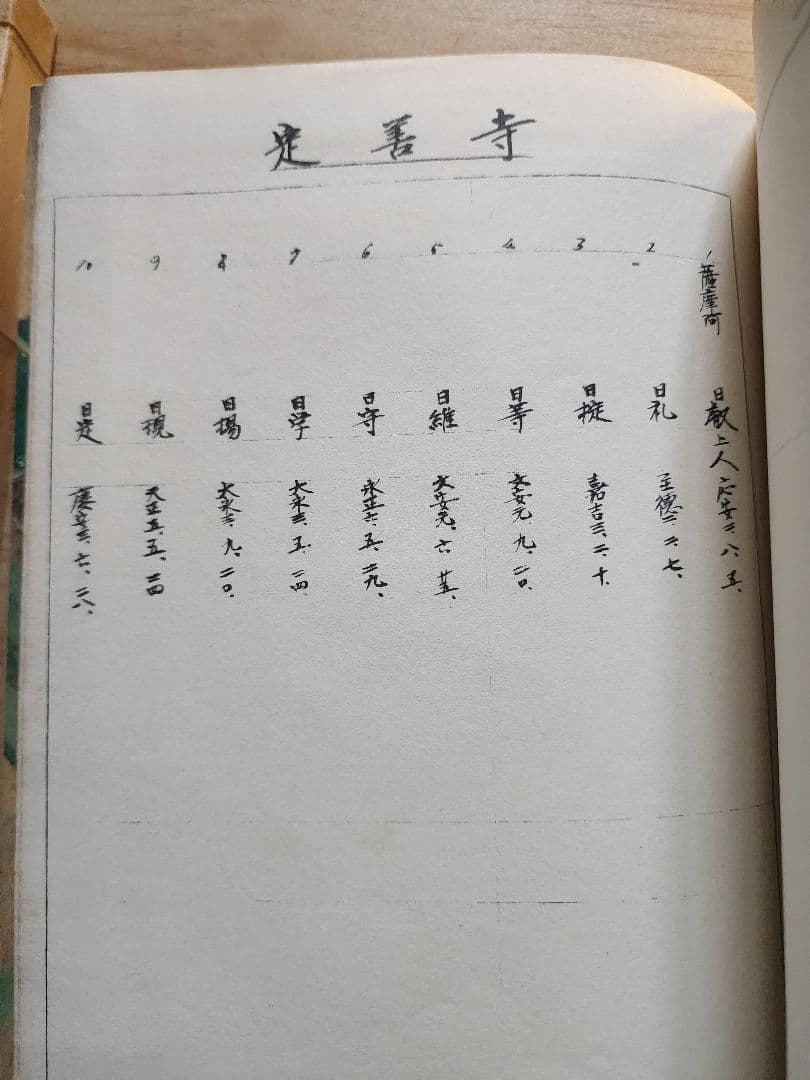 定善寺
1 薩摩阿 日叡上人 応安二、八、五、
2 日礼 至徳二、二、七、
3 日掟 嘉吉三、二、十、
4 日等 文安元、九、二〇、
5 日維 文安元、六、廿五、
6 日守 永正六、五、二九、
7 日学 大永三、五、二四、
8 日揚 大永三、九、二〇、
9 日視 天正五、五、二四
10 日定 慶安三、六、二八、